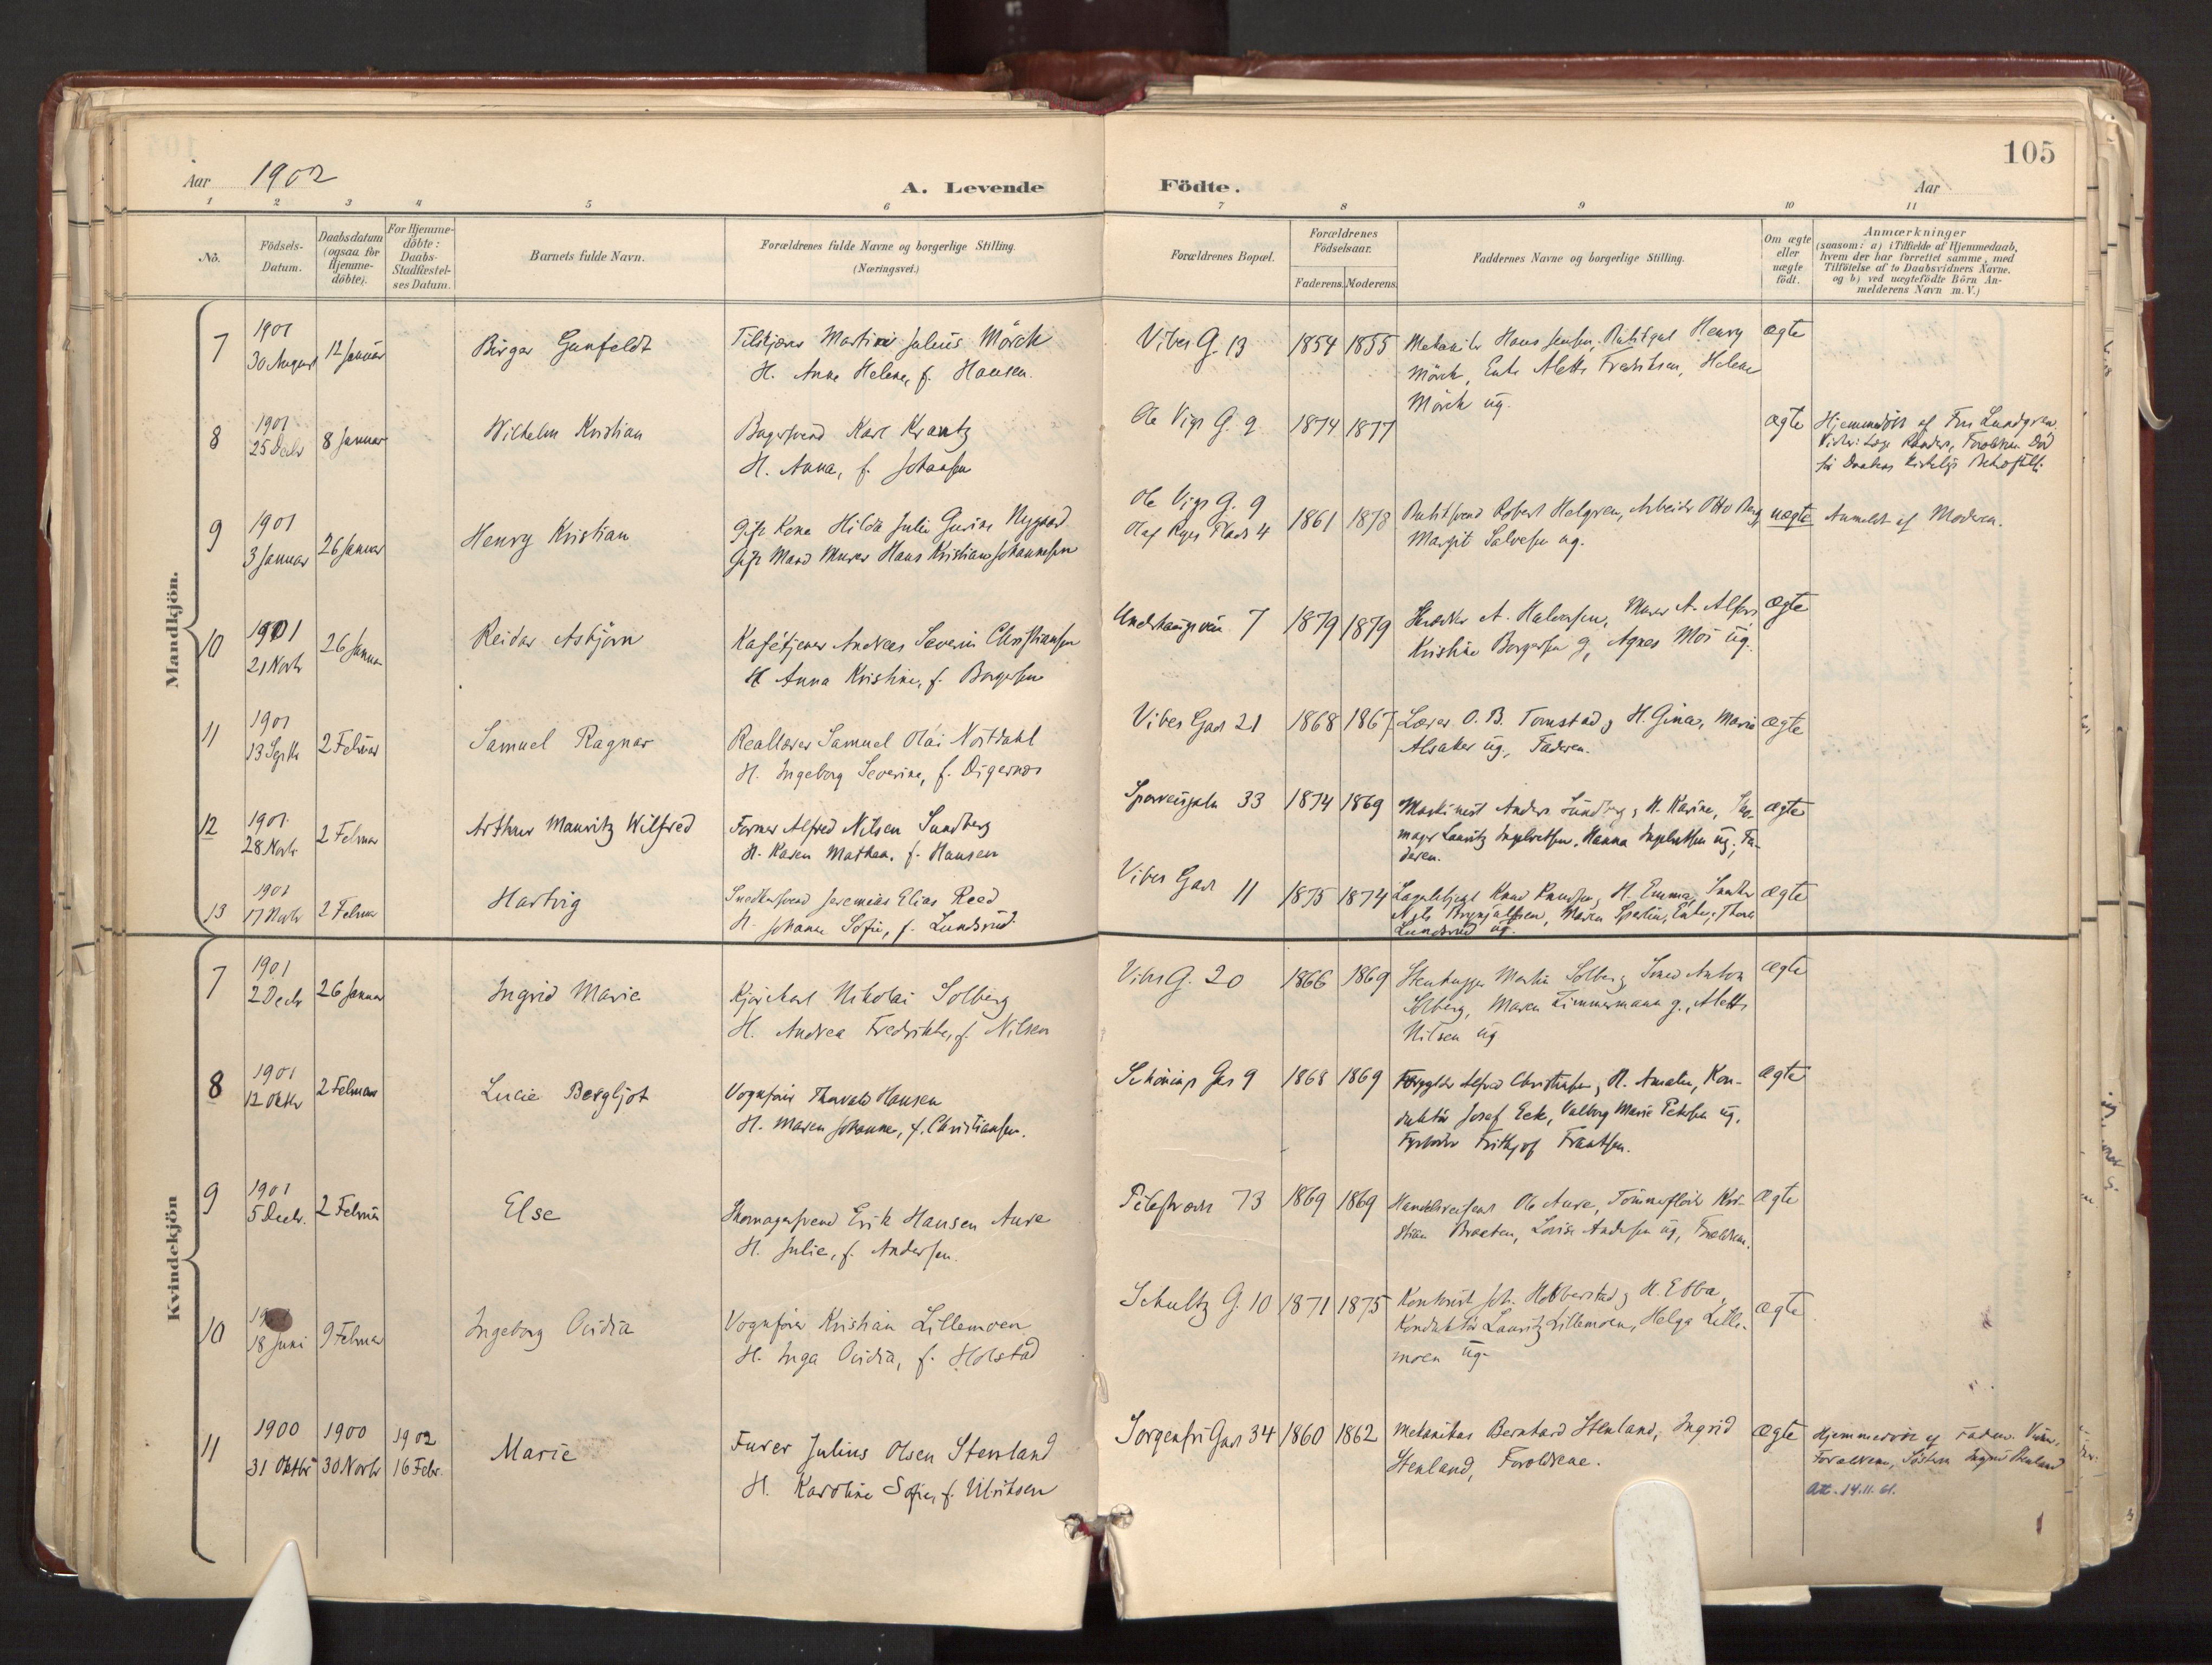 105
Aar 1902
A. Levende Födte.
Aar
1 2 3 4 5 6 7 8 9 10 11
No.
Födsels-
Datum.
Daabsdatum
(ogsaa for
Hjemme-
döbte).
For Hjemme-
döbte:
Daabs-
Stadfæstel-
ses Datum.
Barnets fulde Navn.
Forældrenes fulde Navne og borgerlige Stilling.
(Næringsvei.)
Forældrenes Bopæl.
Forældrenes
Födselsaar.
Faderens. Moderens.
Faddernes Navne og borgerlige Stilling.
Om ægte
eller
uægte
födt.
Anmærkninger
(saasom: a) i Tilfælde af Hjemmedaab,
hvem der har forrettet samme, med
Tilföielse af to Daabsvidners Navne,
og b) ved uægtefödte Börn An-
melderens Navn m. V.)
Mandkjön.
7
1901
30 August
12 Januar
Birger Gunfeldt
Martin Julius Mörck
H. Anna Helene, f. Hansen.
Vibes G. 13
1854 1855
Mekaniker Hans Jensen, Henry
Mörck, Enke Alette Fredriksen, Helene
Mörck ug.
ægte
8
1901
25 Decbr
8 Januar
Wilhelm Kristian
Bagersvend Karl Krantz
H. Anna, f. Johansen
Ole Vigs G. 9
1874 1877
ægte
Hjemmedöbt af Fru Lundgren
9
1901
3 Januar
26 Januar
Henry Kristian
Gift Kone Hilda Julie Gurine Nygaard
Gift Mand Murer Hans Kristian Johannesen
Ole Vigs G. 9
Olaf Ryes Plads 4
1861 1878
Robert Helgren, Arbeider Otto Berg
Margit Salvesen ug.
uægte
Anmeldt af Moderen.
10
1901
21 Novbr
26 Januar
Reidar Asbjörn
Kafétjener Andreas Severin Christiansen
H. Anna Kristine, f. Borgersen
7
1879 1879
A. Halvorsen, Murer A.
Kristine Borgersen g, Agnes Moi ug.
ægte
11
1901
13 Septbr
2 Februar
Samuel Ragnar
Reallærer Samuel Olai Nordahl
H. Ingeborg Severine, f. Digernes
Vibes Gade 21
1868 1867
Lærer O. B. Tomstad, H. Gina, Marie
Alsaker ug., Faderen.
ægte
12
1901
28 Novbr
2 Februar
Arthur Mauritz Wilfred
Former Alfred Nilsen Sundberg
H. Karen Mathea, f. Hansen
Sporveisgaden 33
1874 1869
Maskinist Anders Sundberg, H. Karine, Sko-
mager Lauritz Ingebretsen, Hanna Ingebretsen ug., Fa-
deren.
ægte
13
1901
17 Novbr
2 Februar
Hartvig
Snedkersvend Jeremias Elias Reed
H. Johanne Sofie, f. Lundsrud
Vibes Gade 11
1875 1874
Knud Knudsen, H. Emma, Snedker
Nyls Brynjulfsen, Maren Enke, Thora
Lundsrud ug.
ægte
Kvindekjön
7
1901
2 Decbr
26 Januar
Ingrid Marie
Kjörekarl Nikolai Solberg
H. Andrea Fredrikke, f. Nilsen
Vibes G. 20
1866 1869
Stenhugger Martin Solberg, Anton
Solberg, Maren Zimmermann g., Alette
Nilsen ug
ægte
8
1901
12 Oktbr
2 Februar
Lucie Bergljot
Vognfører Thorvald Hansen
H. Maren Johanne, f. Christiansen.
Schönings Gd 9
1868 1869
Forgylder Alfred Christiansen, H. Amalie, Kon-
duktör Josef Eek, Valborg Marie Petersen ug,
Fyrböder Frithjof Frantsen.
ægte
9
1901
5 Decbr.
2 Februar
Else
Skomagersvend Erik Hansen Aure
H. Julie, f. Andersen.
Pilestrædet 73
1869 1869
Handelsreisende Ole Aure, Tömmerflöder Kri-
stian Braaten, Lovise Andersen ug, Forældrene.
ægte
10
18 Juni
9 Februar
Ingeborg Ovidia
Vognfører Kristian Lillemoen
H. Inga Ovidia, f. Holstad
Schultz G. 10
1871 1875
Kontorist Joh. Hobberstad, H. Ebba,
Konduktör Lauritz Lillemoen, Helga Lille-
moen ug.
ægte
11
1900
31 Oktbr
1900
30 Novbr
1902
16 Febr.
Marie
Furer Julius Olsen Stenland
H. Karoline Sofie, f. Ulriksen
Sorgenfri Gade 34
1860 1862
Mekanikus Bernhard Stenland, Ingrid
Stenland, Forældrene.
ægte
Hjemmedöbt af Faderen. Vidner,
Forældrene, Söstren Ingrid Stenland
Att. 14.11.61.